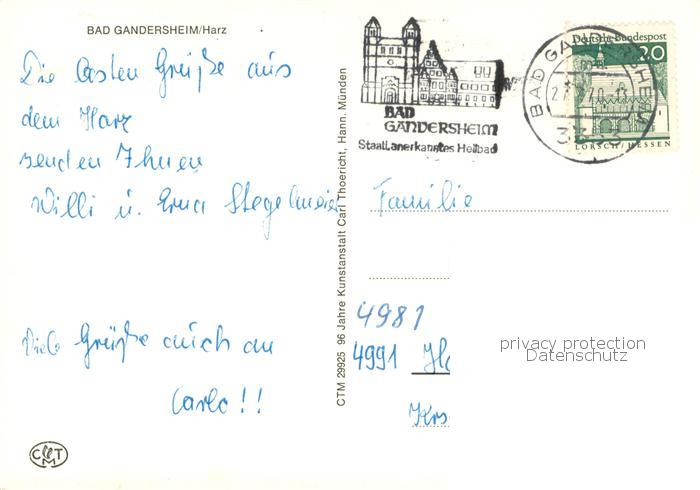 BAD GANDERSHEIM/Harz
Die besten Grüße aus
dem Harz
senden Ihnen
Willi u. Erna Stegelmeier
Viele Grüße auch an
Carlo!!
CTM 29925 96 Jahre Kunstanstalt Carl Thoericht, Hann. Münden
BAD
GANDERSHEIM
Staatl. anerkanntes Heilbad
BAD GANDERSHEIM
3353
Deutsche Bundespost
20
LORSCH/HESSEN
Familie
4981
4991
Krs
privacy protection
Datenschutz
CTM